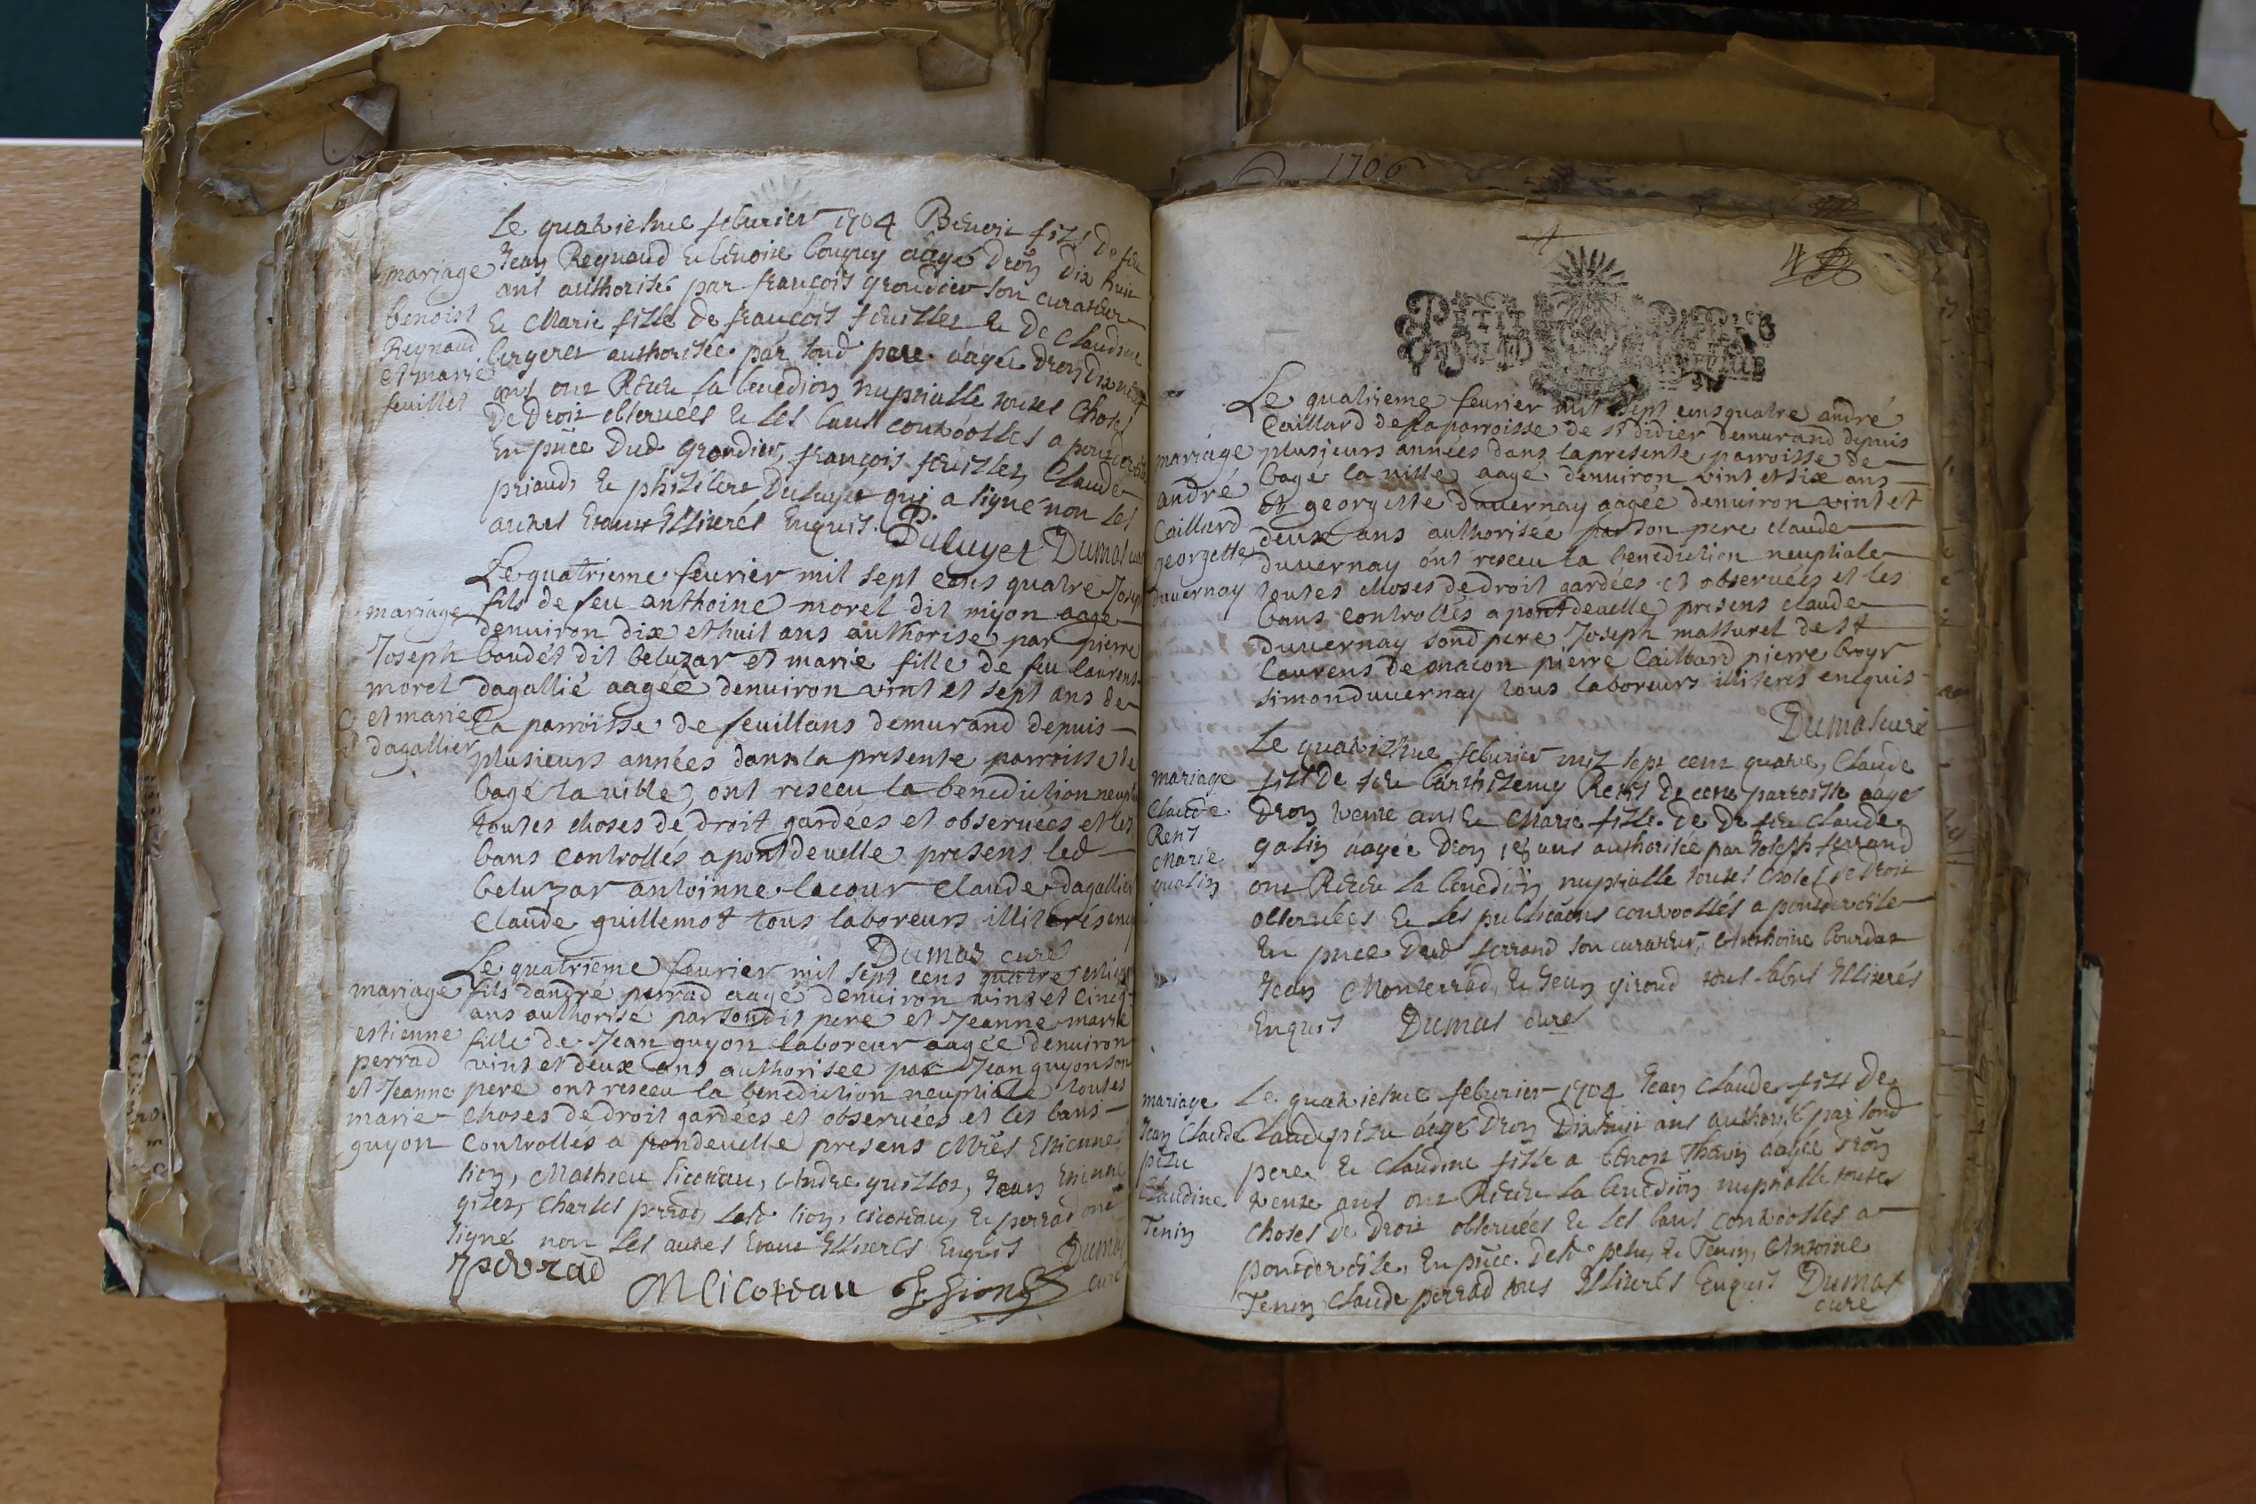 Le quatriesme feburier 1704 Benoit fils de feu
Jean Reynaud et benoite Couguy aagé d'ron dix huit
ans authorisé par françois grondier son curateur
et Marie fille de françois feuillet et de Claudine
bergeret authorisée par sond pere aagée d'ron dix neuf
ans ont Receu la benedion nuptialle toutes choses
de droit observees et les bans controolles a pondevesle
En pnce dud grondier, françois feuillet, Claude
priaud, et philibert Duluyer qui a signé non les
autres Estant Illiterés Enquis. P. Puluyer Dumas curé
mariage
benoist
Reynaud
et marie
feuillet
Le quatrieme fevrier mil sept cens quatre Joseph
fils de feu anthoine morel dit miyon aagé
denviron dix et huit ans authorise par pierre
boudet dit beluzar et marie fille de feu laurens
dagallié aagée denviron vint et sept ans de
la parroisse de feuillans demurand depuis
plusieurs années dans la presente parroisse de
bagé la ville, ont resceu la benediction neuptiale
toutes choses de droit gardées et observées et les
bans controllés a pontdevelle presens led
beluzar antoinne lacour Claude dagallier
Claude guillemot tous laboreurs illiterés enquis
Dumas curé
mariage
Joseph
morel
et marie
dagallier
Le quatrieme fevrier mil sept cens quatre estienne
fils dandré perrad aagé denviron vint et cinq
ans authorisé par sondit pere et Jeanne marie
fille de Jean guyon laboreur aagée denviron
vint et deux ans authorisée par Jean guyon son
pere ont resceu la benediction neuptiale toutes
choses de droit gardées et observées et les bans
Controlles a pondevelle presens Mres Estienne
lion, Mathieu Cicoteau, Andre guillot, Jean Etienne
gilet, Charles perrad, lesd lion, cicoteau, et perrad ont
signé non les autres Estant Illiterés Enquis Dumas
curé
perrad
M Cicoteau E Lion
mariage
estienne
perrad
et Jeanne
marie
guyon
1706
4
Le quatrieme fevrier mil sept cens quatre andré
Caillard de la parroisse de st didier demurand depuis
plusieurs années dans la presente parroisse de
bagé la ville aagé denviron vint et six ans
et georgette duvernay aagée denviron vint et
deux ans authorisée par son pere claude
duvernay ont resceu la benediction neuptiale
toutes choses de droit gardées et observées et les
bans controllés a pontdevelle presens claude
duvernay sond pere Joseph mathurel de st
laurens de macon pierre Caillard pierre broyr
simon duvernay tous laboreurs illiterés encquis
Dumas curé
mariage
andré
Caillard
georgette
duvernay
Le quatriesme feburier mil sept cent quatre, Claude
fils de feu barthelemy Rent de cette parroisse aagé
d'ron trente ans et Marie fille de de feu Claude
galin aagée d'ron 18 ans authorisée par Joseph ferrand
ont Receu la benedion nuptialle toutes choses de droit
observées et les publicaons controolles a pontdevesle
En pnce dud ferrand son curateur, Anthoine bourdat
Jean Monterrad, et Jean giroud tous labrs Illiterés
Enquis Dumas curé
mariage
Claude
Rent
Marie
gualin
Le quatriesme feburier 1704 Jean Claude fils de
Claude petu aagé d'ron dix huit ans authorisé par sond
pere et Claudine fille a benoit Thenin aagée d'ron
trente ans ont Receu la benedion nuptialle toutes
choses de droit observées et les bans controolles a
pontdevesle, En pnce desd petu, et Tenin, Antoine
Tenin Claude perrad tous Illiterés Enquis Dumas
curé
mariage
Jean Claude
petu
Claudine
Tenin